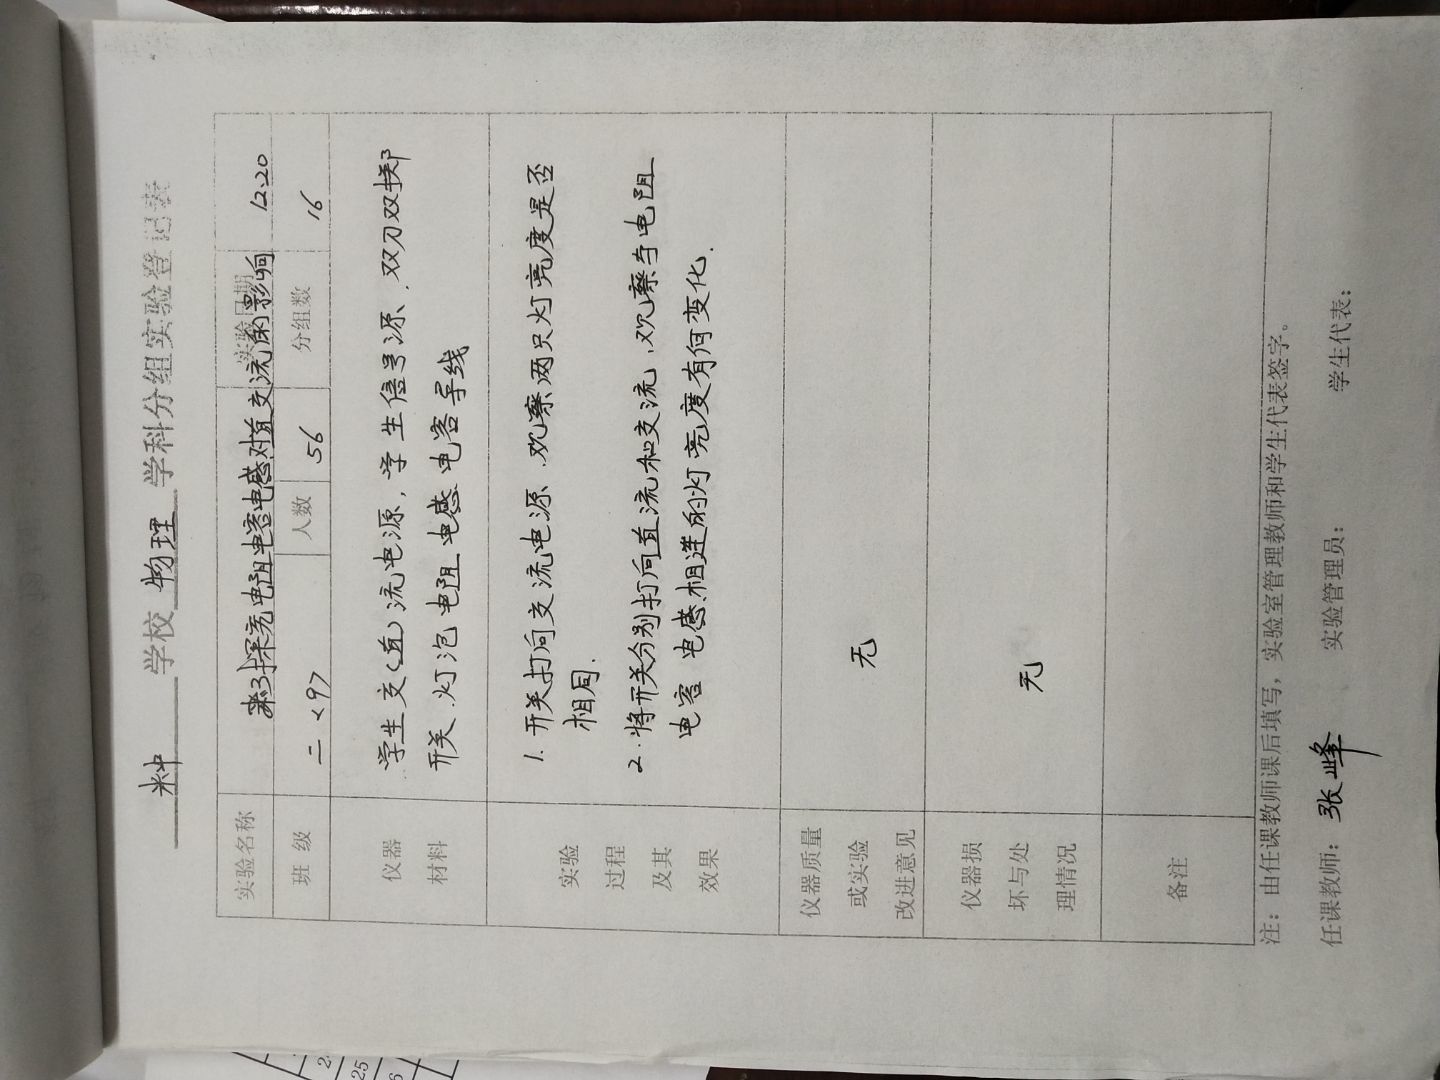 学校 物理 学科分组实验登记表
实验名称 探究电阻电容电感对直交流的影响 实验日期 12.20
班 级 二<9> 人数 56 分组数 16
仪器
材料
学生交(直)流电源,学生信号源、双刀双掷
开关、灯泡 电阻 电感 电容 导线
实验
过程
及其
效果
1. 开关打向交流电源、观察两只灯亮度是否
相同.
2. 将开关分别打向直流和交流、观察与电阻
电容 电感、相连的灯亮度有何变化.
仪器质量
或实验
改进意见
无
仪器损
坏与处
理情况
无
备注
注:由任课教师课后填写,实验室管理教师和学生代表签字。
任课教师:张峰 实验管理员: 学生代表:
2.
25
6